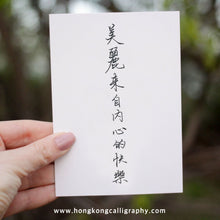 美麗来自内心的快樂
www.hongkongcalligraphy.com